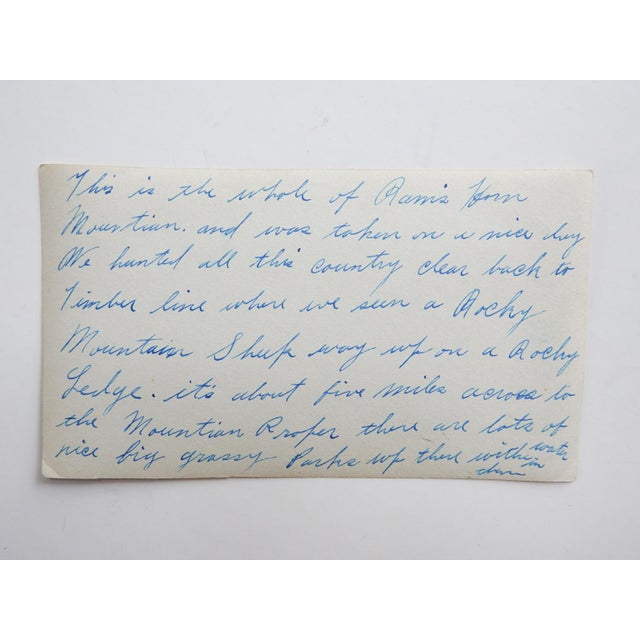 This is the whole of Rams Horn
Mountian. and was taken on a nice day
We hunted all this country clear back to
Timber line where we seen a Rocky
Mountain Sheep way up on a Rocky
Ledge. it's about five miles across to
the Mountian Proper there are lots of
nice big grassy Parks up there with water
in them